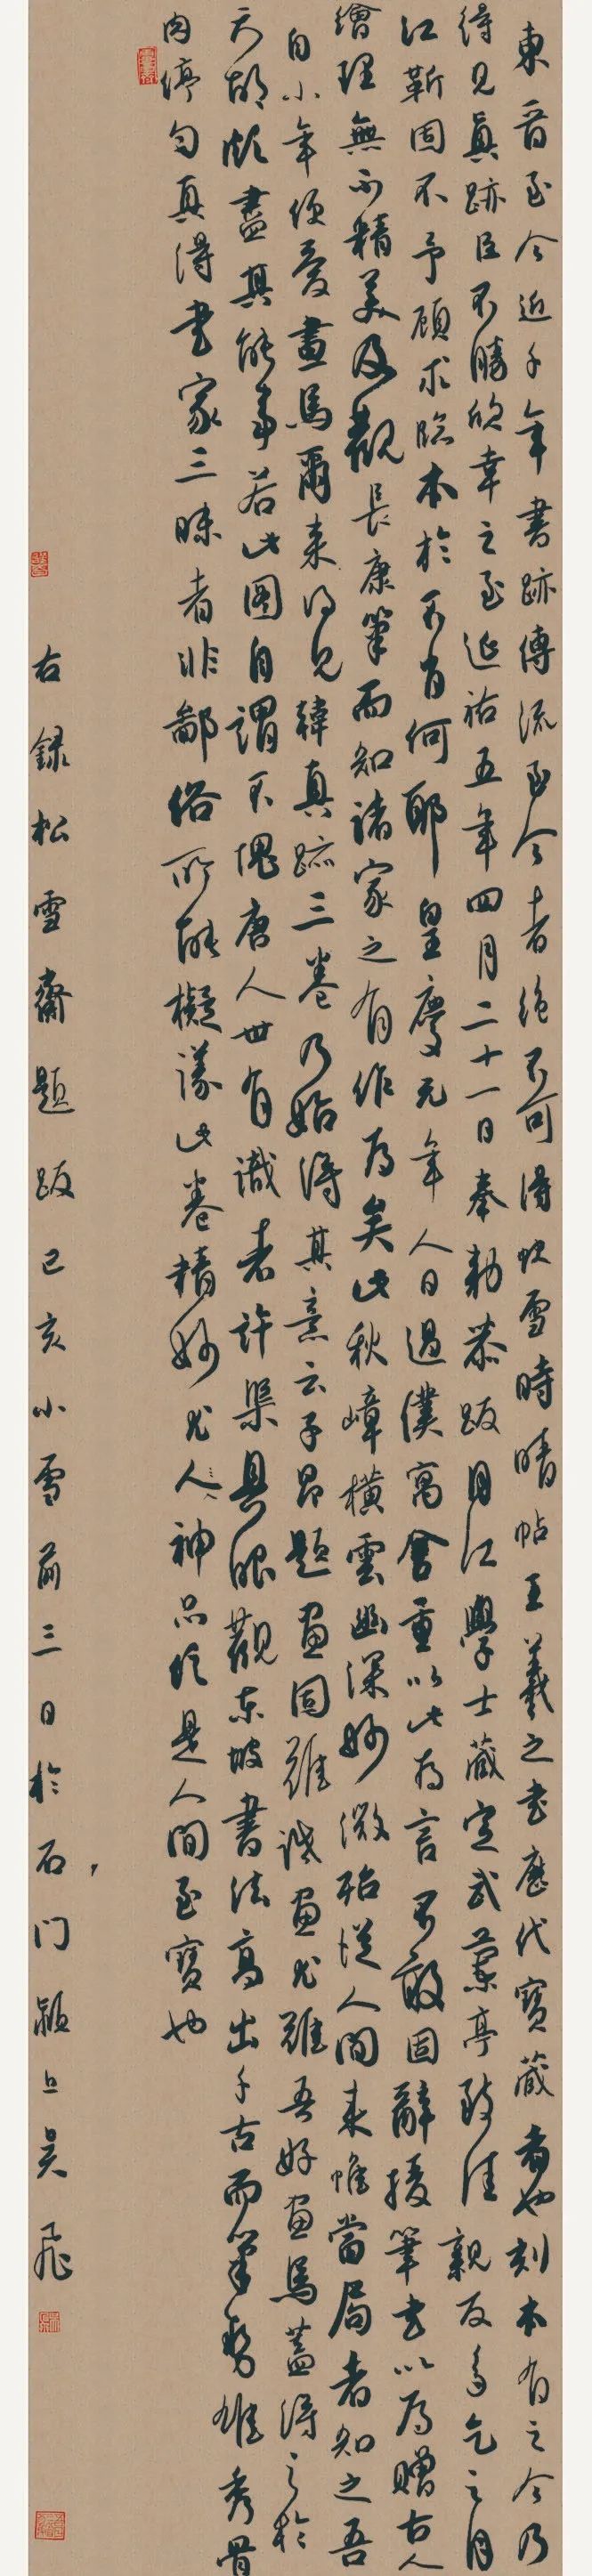 東晉至今近千年書跡傳流至今者絶不可得快雪時晴帖王羲之書歷代寶藏者也刻本有之今乃
得見真跡臣不勝欣幸之至延祐五年四月二十一日奉勅恭跋月江學士藏定武蘭亭致佳親友多乞之月
江靳固不予顧求臨本於不肖何耶皇慶元年人日過僕寓舍重以此為言不敢固辭援筆書以為贈古人
繪理無不精美及觀長康筆而知諸家之有作為矣此秋嶂橫雲幽深妙微殆從人間來惟當局者知之吾
自小年便愛畫馬爾來得見韓真跡三卷乃始得其意云子昂題畫固難識畫尤難吾好畫馬蓋得之於
天故頗盡其能事若此圖自謂不愧唐人世有識者許渠具眼觀東坡書法高出千古而筆勢雄秀骨
肉停勻真得書家三昧者非鄙俗所能擬議此卷精妙尤人神品信是人間至寶也
右録松雪齋題跋己亥小雪前三日於石门潁上吴飛